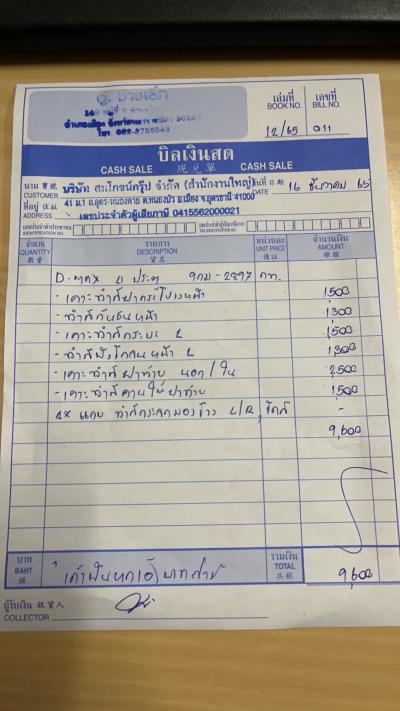 อู่ ช่างเล็ก
โทร.
เล่มที่
BOOK NO.
12/65
เลขที่
BILL NO.
011
บิลเงินสด
CASH SALE 現兑單 CASH SALE
นาม 寶號
CUSTOMER
บริษัท สมโภชน์กรุ๊ป จำกัด (สำนักงานใหญ่)
วันที่ 日期
DATE
16 ธันวาคม 65
ที่อยู่ 住址
ADDRESS
41 ม.1 ถ.อุดร-หนองคาย ต.หนองบัว อ.เมือง จ.อุดรธานี 41000
เลขประจำตัวผู้เสียภาษี 0415562000021
เลขประจำตัวประชาชน
IDENTIFICATION NO.
เลขประจำตัวผู้เสียภาษีอากร
จำนวน
QUANTITY
數量
รายการ
DESCRIPTION
貨名
หน่วยละ
UNIT PRICE
價註
จำนวนเงิน
AMOUNT
銀碼
D-max 4 ประตู 2897
- เคาะทำสีฝากระโปรงหน้า 1,500
- ทำสีกันชนหน้า 1,300
- เคาะทำสีกระบะ L 1,500
- ทำสีบังโคลนหน้า L 1,300
- เคาะทำสีฝาท้าย นอก/ใน 2,500
- เคาะทำสีคานใต้ฝาท้าย 1,500
แถม ทำสีกระจกมองข้าง L/R, -
9,600
บาท
BAHT
銖
เก้าพันหกร้อยบาทถ้วน
รวมเงิน
TOTAL
共銀
9,600
ผู้รับเงิน 收貨人
COLLECTOR